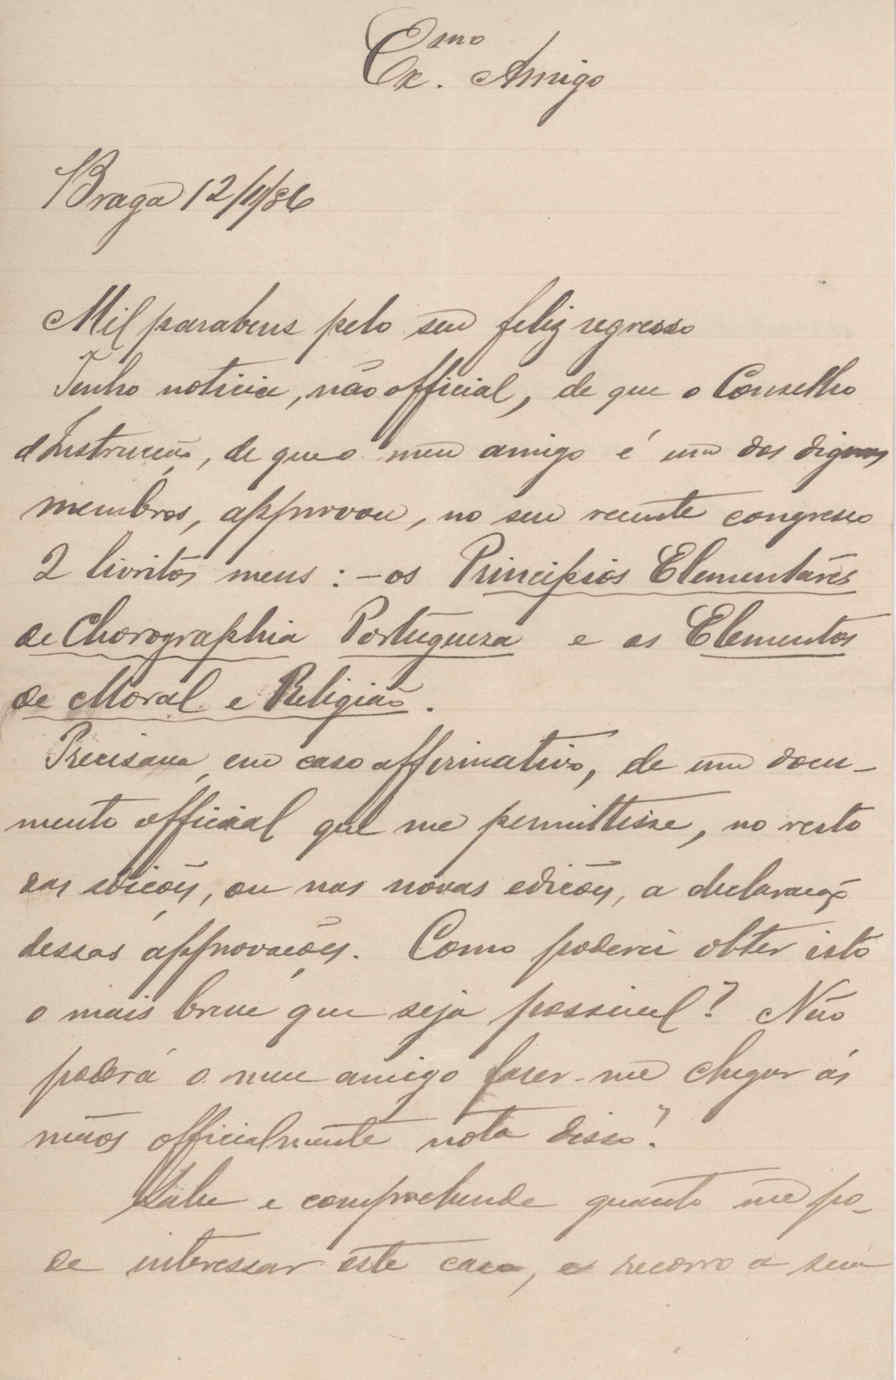 Ex.mo Amigo
Braga 12/11/86
Mil parabens pelo seu feliz regresso
Tenho noticia, não official, de que o Conselho
d'Instrucção, de que o meu amigo é um dos dignos
membros, approvou, no seu recente congresso
2 livritos meus: - os Principios Elementares
de Chorographia Portugueza e os Elementos
de Moral e Religião.
Precisava, em caso affirmativo, de um docu-
mento official que me permittisse, no resto
das edições, ou nas novas edições, a declaração
dessas approvações. Como poderei obter isto
o mais breve que seja possivel? Não
poderá o meu amigo fazer-me chegar ás
mãos officialmente nota disso?
Sabe e comprehende quanto me po-
de interessar este caso, e recorro a seu